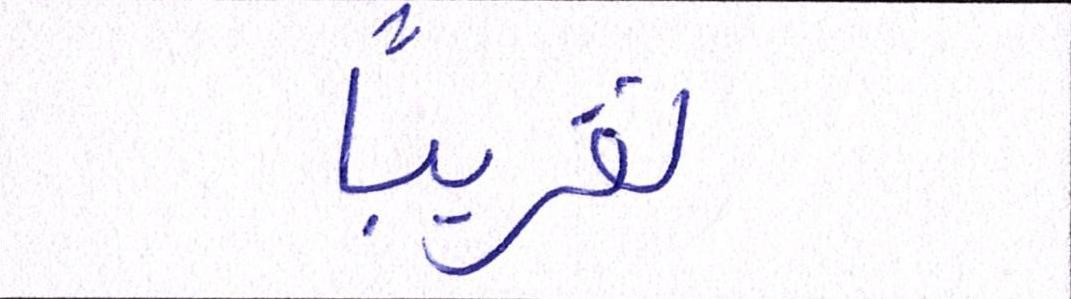 تقريبًا